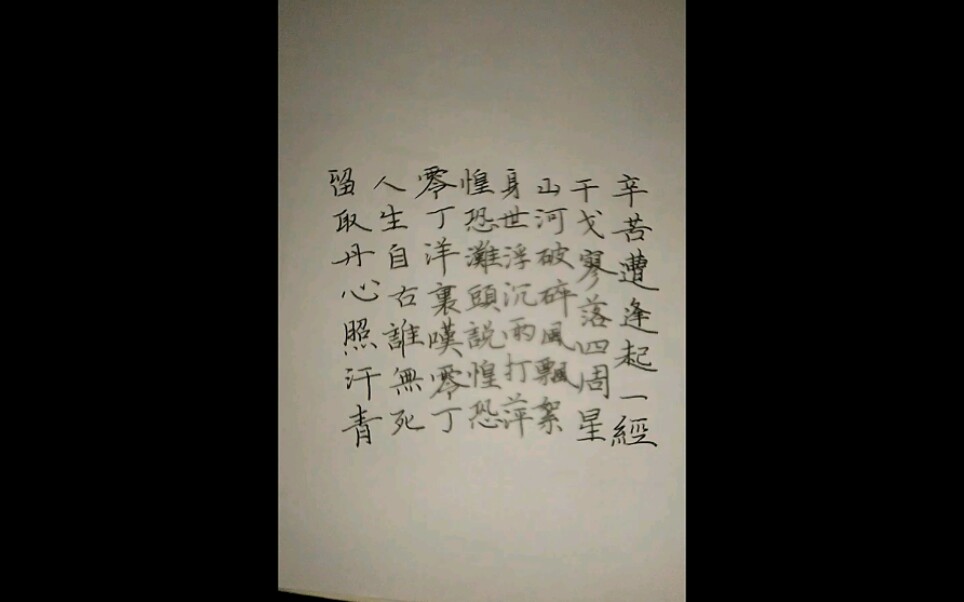 辛苦遭逢起一經
干戈寥落四周星
山河破碎風飄絮
身世浮沉雨打萍
惶恐灘頭説惶恐
零丁洋裏嘆零丁
人生自古誰無死
留取丹心照汗青